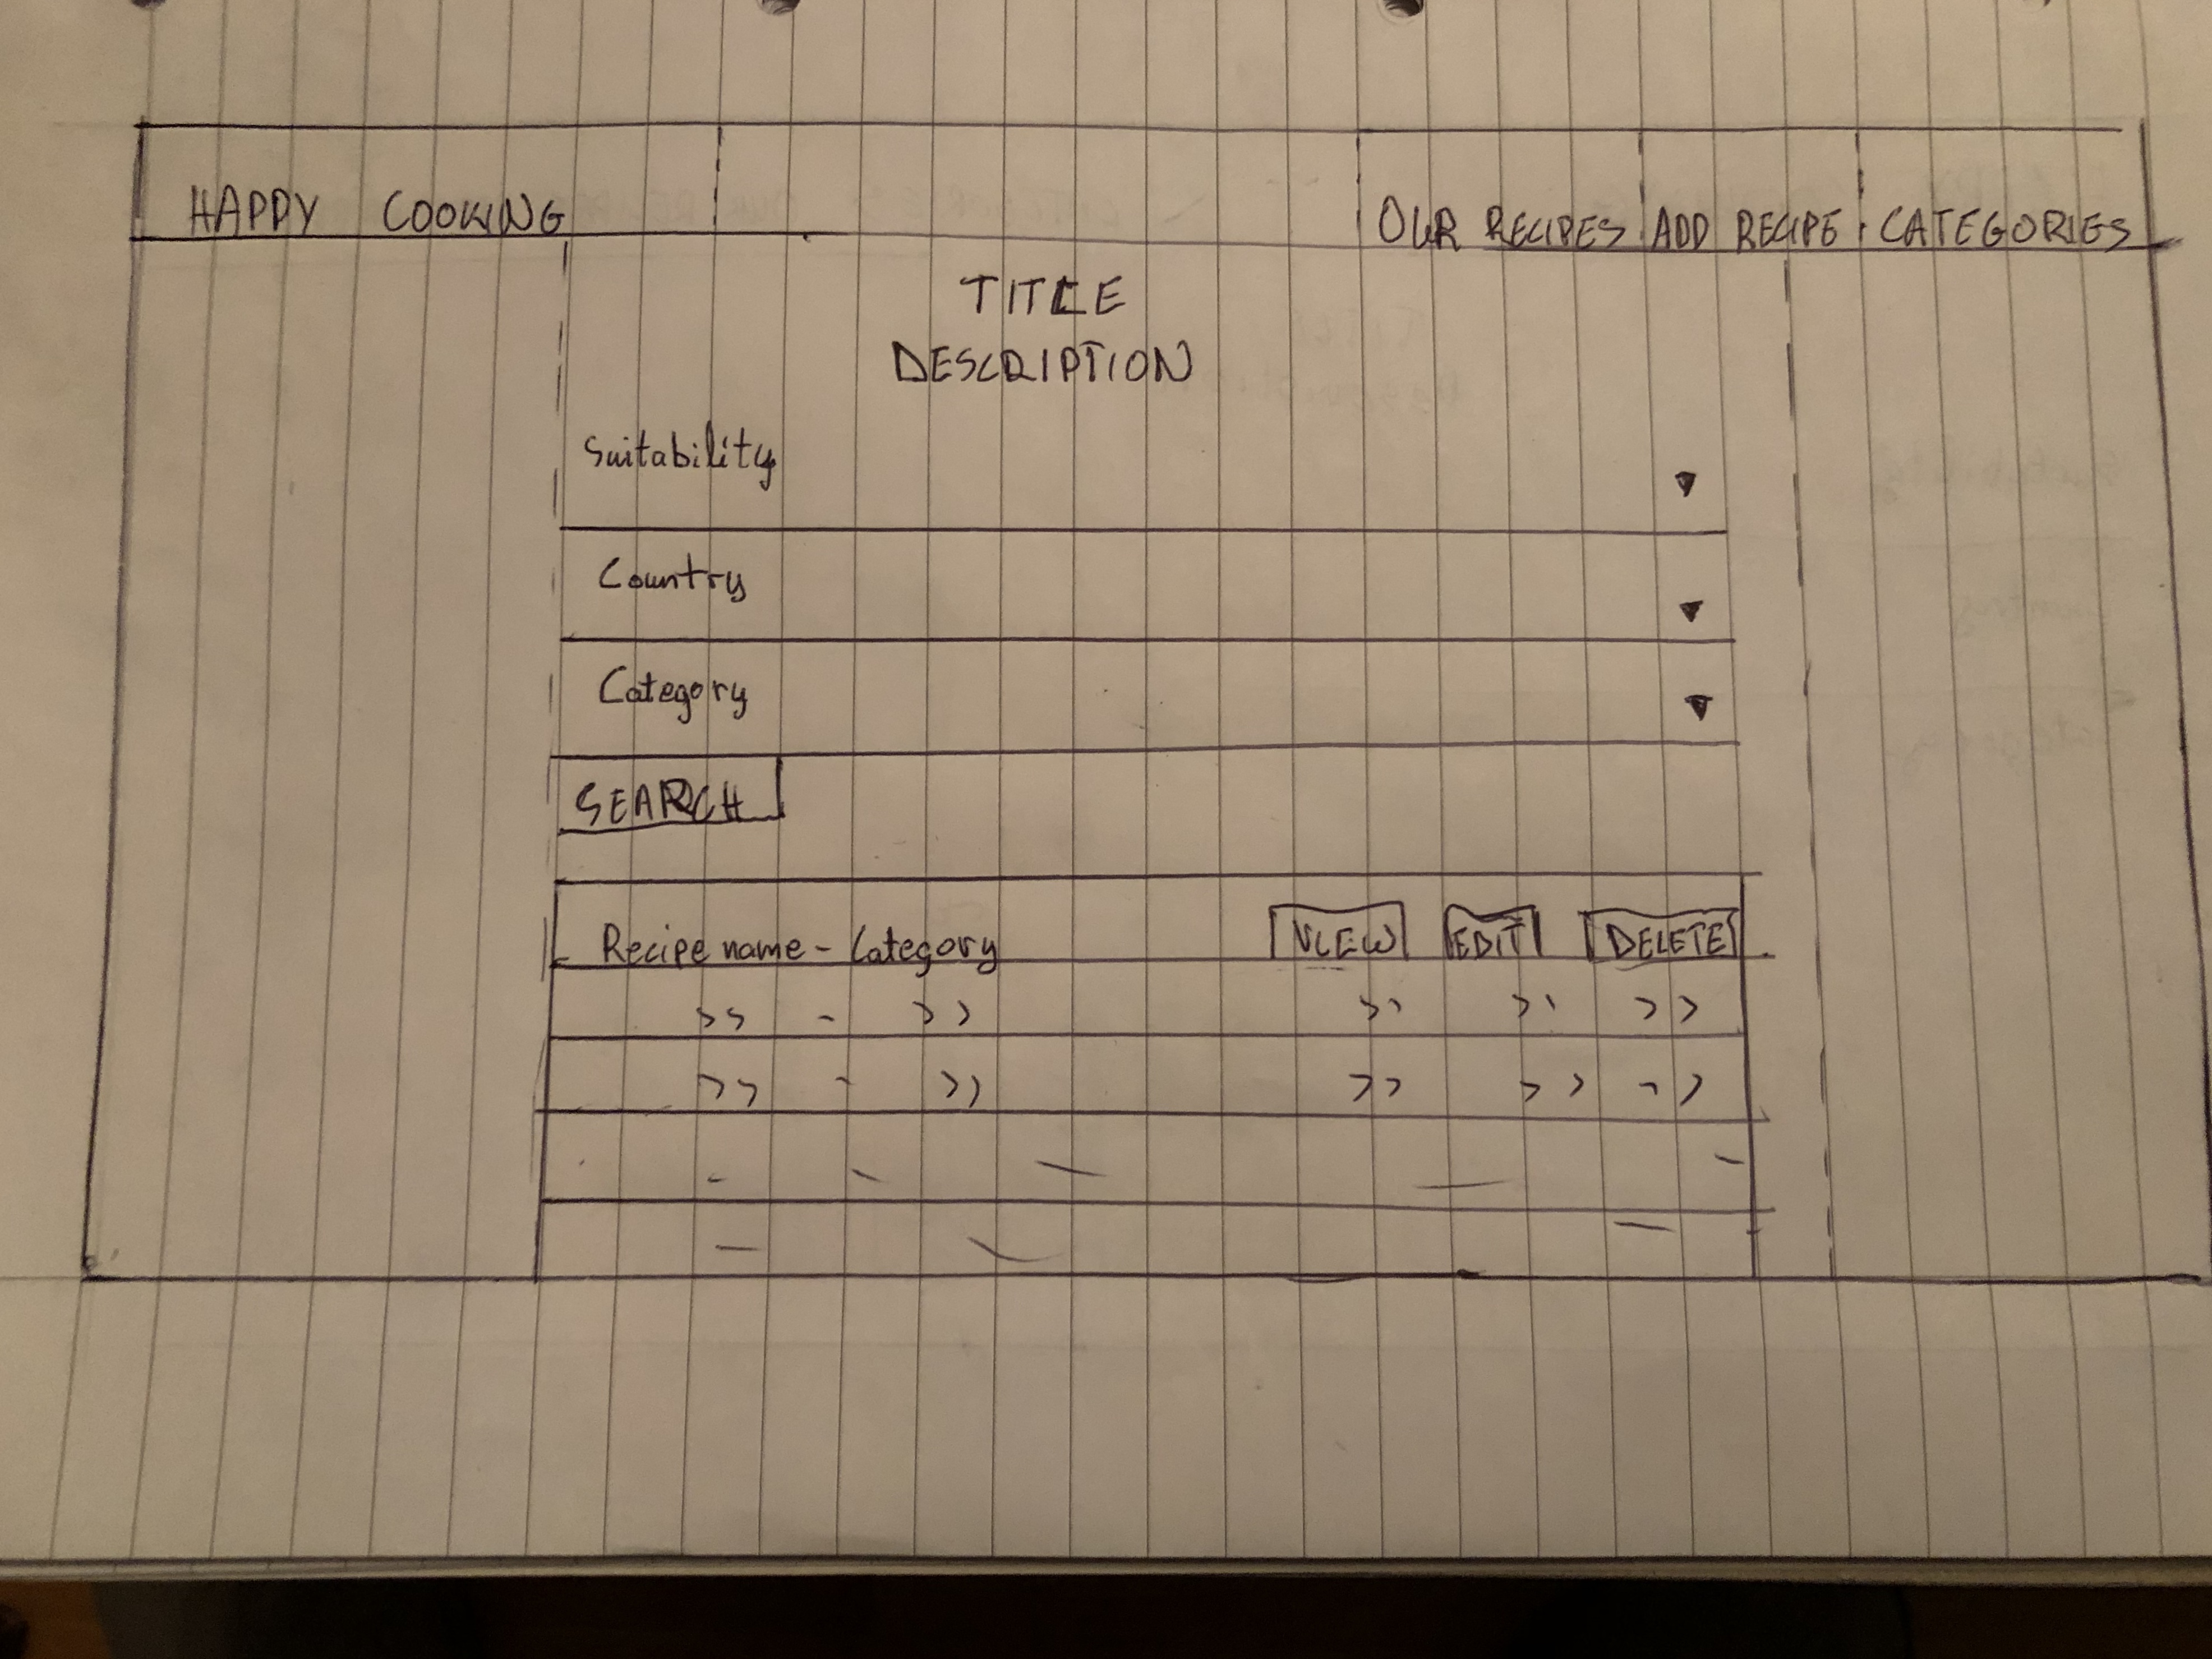 HAPPY COOKING OUR RECIPES ADD RECIPE CATEGORIES
TITLE
DESCRIPTION
Suitability
Country
Category
SEARCH
Recipe name - Category VIEW EDIT DELETE
>> - >> >> >> >>
>> - >> >> >> >>